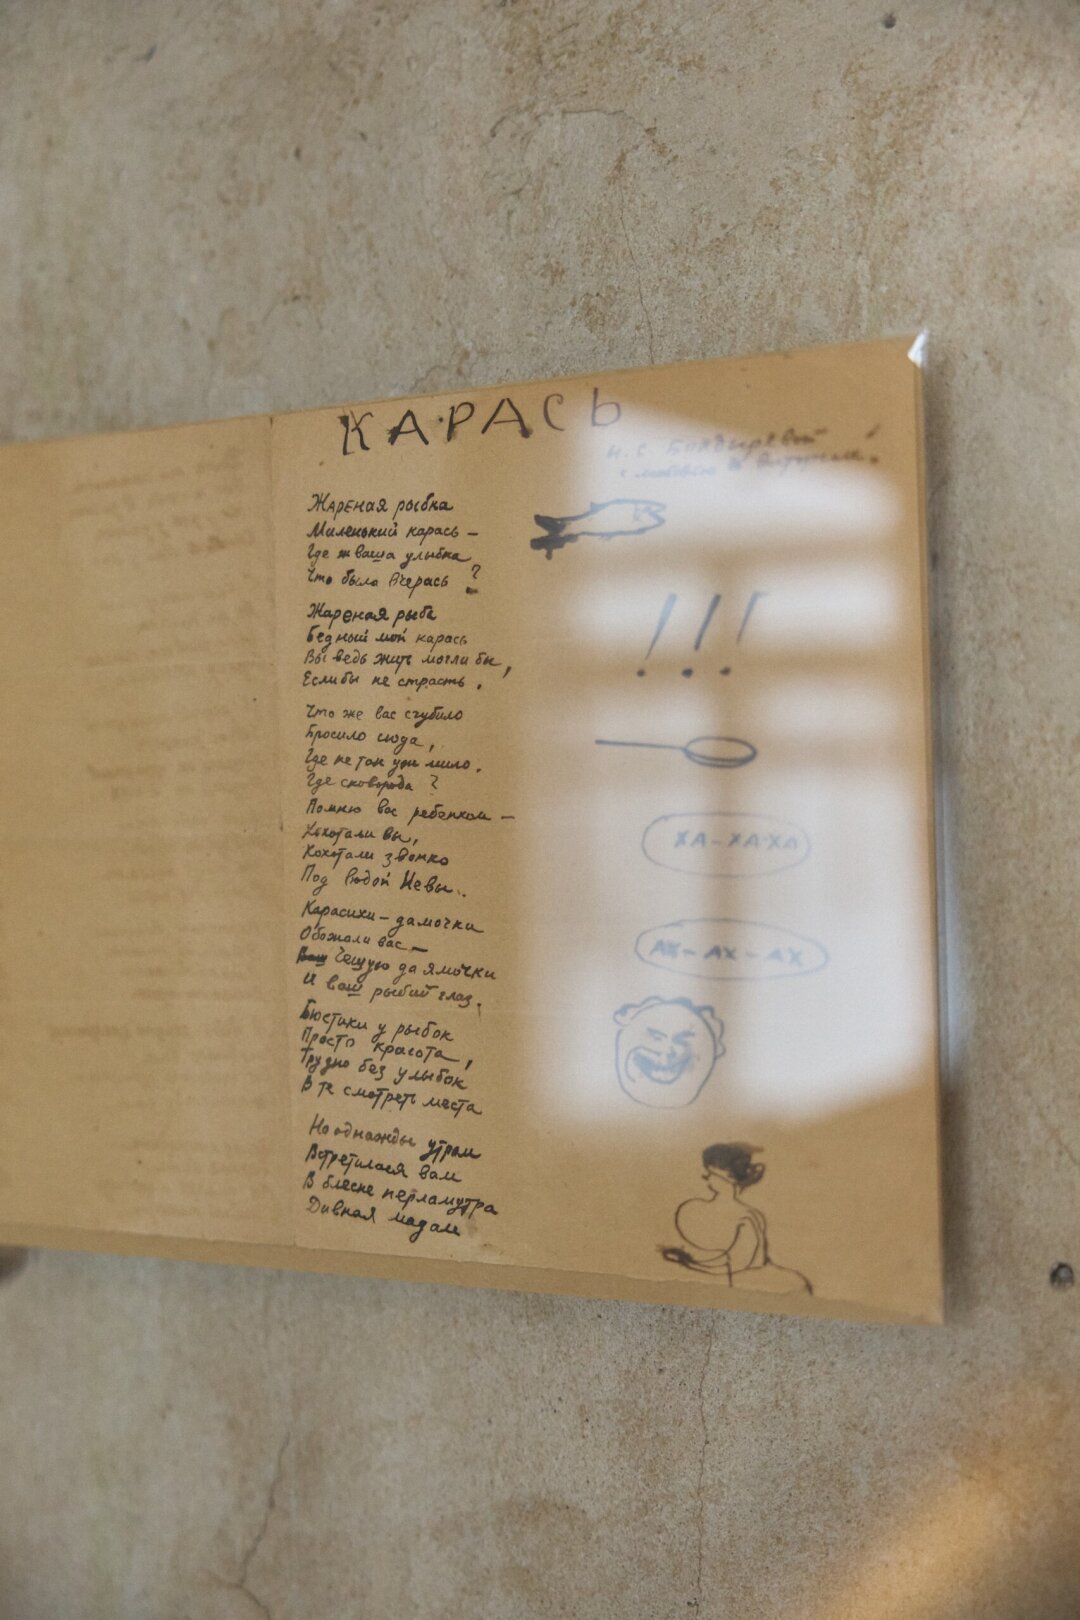 КАРАСЬ
Н. С. Болдыревой
с любовью и
Жареная рыбка
Миленький карась –
Где ж ваша улыбка
Что была вчерась ?
Жареная рыба
Бедный мой карась
Вы ведь жить могли бы,
Если бы не страсть.
Что же вас сгубило
Бросило сюда,
Где не так уж мило.
Где сковорода ?
Помню вас ребенком –
Хохотали вы,
Хохотали звонко
Под водой Невы..
Карасихи – дамочки
Обожали вас –
Чешую да ямочки
И ваш рыбий глаз.
Бюстики у рыбок
Просто красота,
Трудно без улыбок
В те смотреть места
Но однажды утром
Встретилася вам
В блеске перламутра
Дивная мадам
!!!
ХА-ХА-ХА
АХ-АХ-АХ